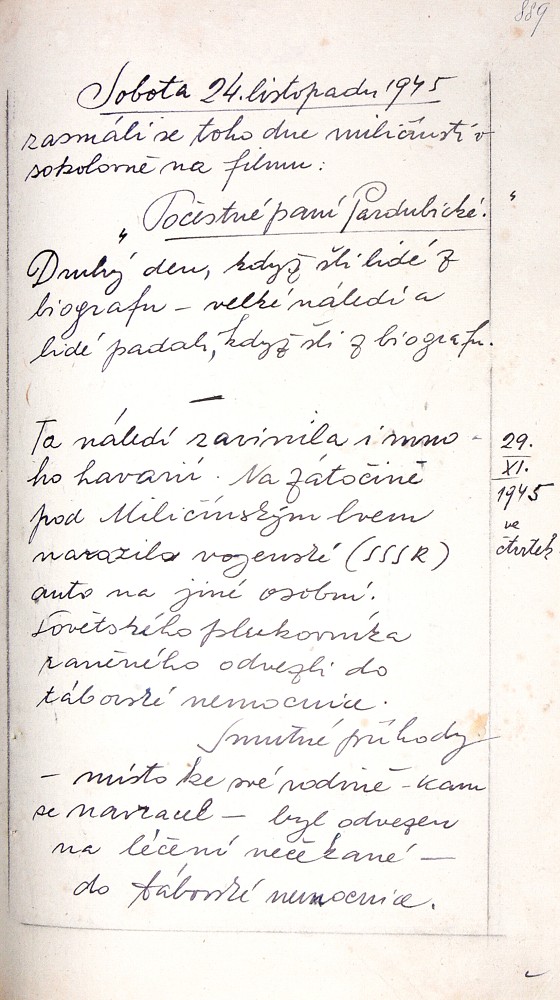 889
Sobota 24. listopadu 1945
zasmáli se toho dne miličínští v
sokolovně na filmu:
„Počestné paní Pardubické."
Druhý den, když šli lidé z
biografu – velké náledí a
lidé padali, když šli z biografu.
—
Ta náledí zavinila i mno-
ho havarií. Na zátočině
pod Miličínským lvem
narazilo vojenské (SSSR)
auto na jiné osobní.
Sovětského plukovníka
raněného odvezli do
táborské nemocnice.
Smutné příhody
– místo ke své rodině – kam
se navracel – byl odvezen
na léčení nečekané –
do táborské nemocnice.
29.
XI.
1945
ve
čtvrtek